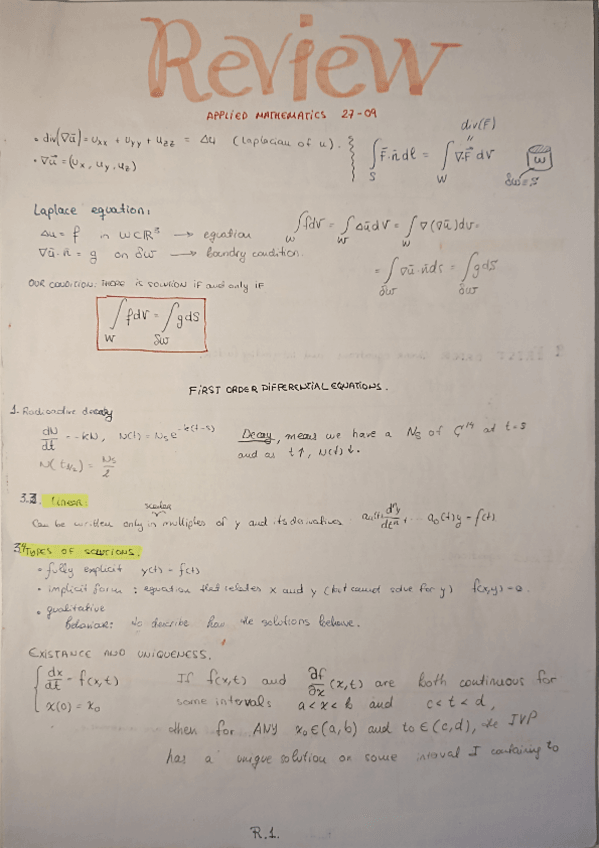 Review
APPLIED MATHEMATICS 27-09
• div(∇ū) = u_xx + u_yy + u_zz = Δu (laplacian of u).
• ∇ū = (u_x, u_y, u_z)
∫_S F̄·n̄ dl = ∫_W ∇·F̄ dV
div(F)
"
W
δW = S
Laplace equation:
Δu = f in W⊂ℝ³ → equation
∇ū·n̄ = g on δW → boundry condition.
∫_W fdV = ∫_W Δū dV = ∫_W ∇(∇ū)dV =
= ∫_δW ∇ū·n̄ds = ∫_δW gdS
OUR CONDITION: THERE IS SOLUTION if and only IF
∫_W fdV = ∫_δW gdS
FIRST ORDER DIFFERENTIAL EQUATIONS.
1. Radioactive decay
dN/dt = -kN, N(t) = N_s e^{-k(t-s)} Decay, means we have a N_s of C¹⁴ at t=s
N(t_{1/2}) = N_s/2 and as t↑, N(t)↓.
3.3. LINEAR:
scalar
Can be written only in multiples of y and its derivatives a_n(t) dⁿy/dtⁿ + ... a_0(t)y = f(t)
3.4 TYPES OF SOLUTIONS:
• fully explicit y(t) = f(t)
• implicit form : equation that relates x and y (but cannot solve for y) f(x,y) = 0.
• qualitative
behavior: to describe how the solutions behave.
EXISTANCE AND UNIQUENESS.
{ dx/dt = f(x,t) If f(x,t) and ∂f/∂x (x,t) are both continuous for
x(0) = x_0 some intervals a<x<b and c<t<d,
then for ANY x_0∈(a,b) and t_0∈(c,d), the IVP
has a unique solution on some interval I containing t_0
R.1.